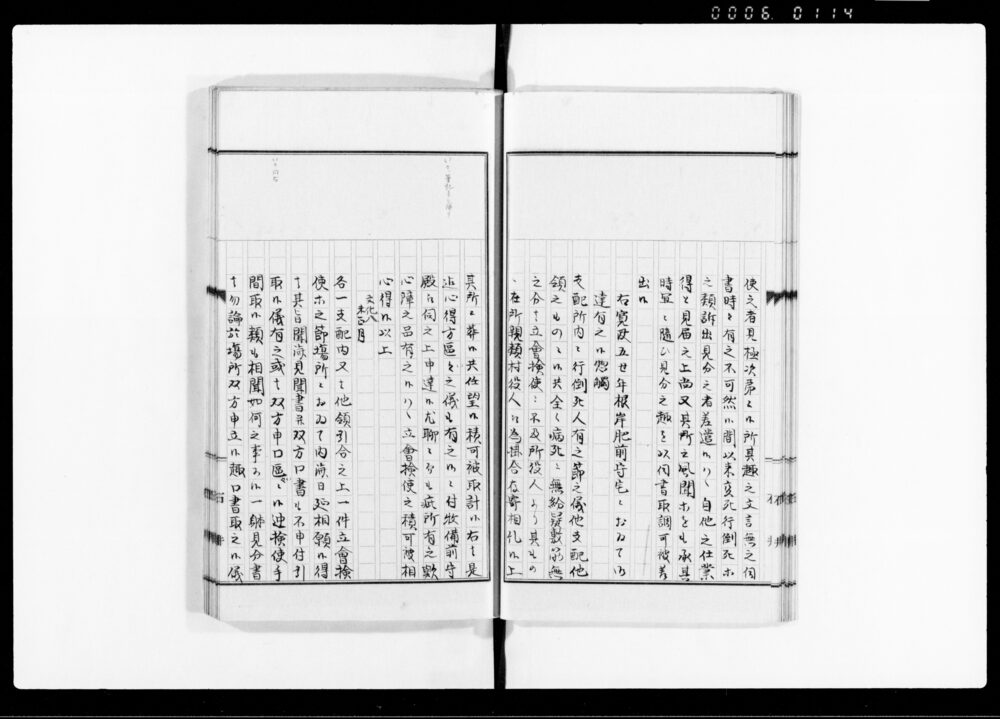 0006 0114
使之者見極次第ニ而所其趣之文言無之伺
書時々有之不可然候間以来変死行倒死等
之類訴出見分之者差遣候ハヽ自他之仕業
得と見届之上尚又其所之風聞等をも承其
時宜ニ随ひ見分之趣を以伺書取調可被差
出候
右寛政五丑年根岸肥前守宅ニおゐて
達有之候
支配所内ニ行倒死人有之節之儀他支配他
領之ものニ候共全く病死ニ無紛疑敷筋無
之分者立会検使ニ不及所役人より其もの
在所親類村役人
其所ニ葬候共任望候積可被取計候右者是
迄心得方区々之儀も有之候ニ付牧備前守
殿江伺之上申達候尤聊ニ而も疵所有之歟
心障之品有之候ハヽ立會検使之積可被相
心得候以上
文化八
未正月
各一支配内又ハ他領引合之上一件立會検
使等之節場所ニおゐて内済日延相願候得
者其旨聞済見聞書并双方口書も不申付引
取候儀有之或者双方申口区々ニ候迚検使手
間取候類も相聞如何之事ニ候一躰見分書
者勿論於場所双方申立候趣口書取之候儀